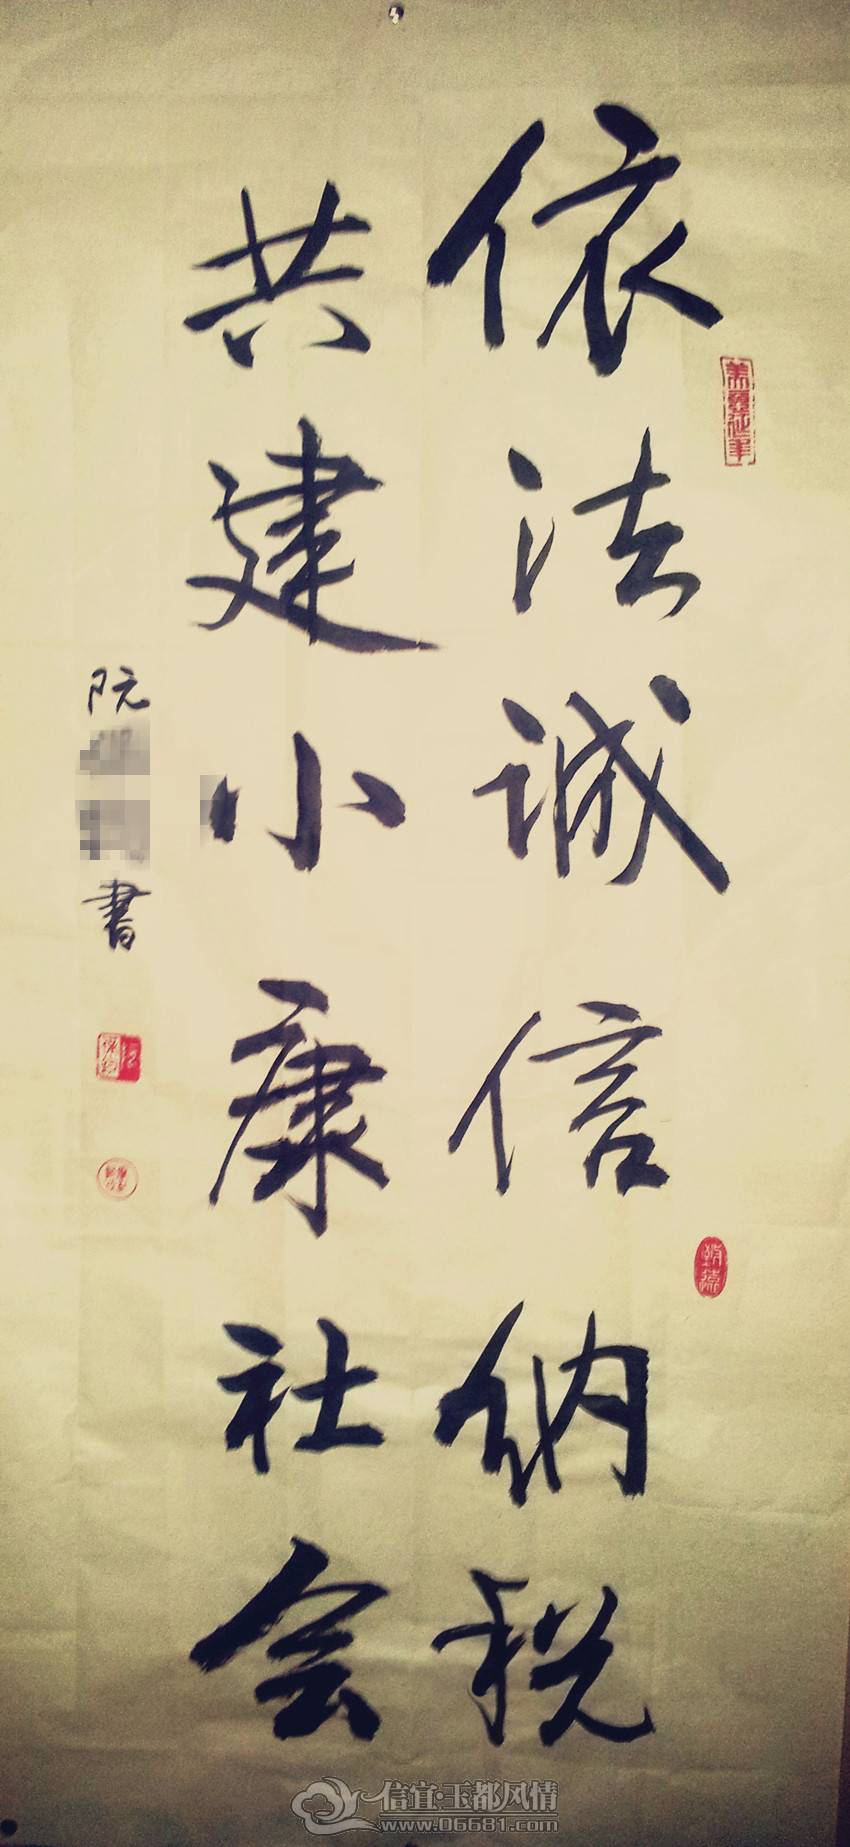 依法诚信纳税
共建小康社会
阮
書
信宜·玉都风情
www.06681.com